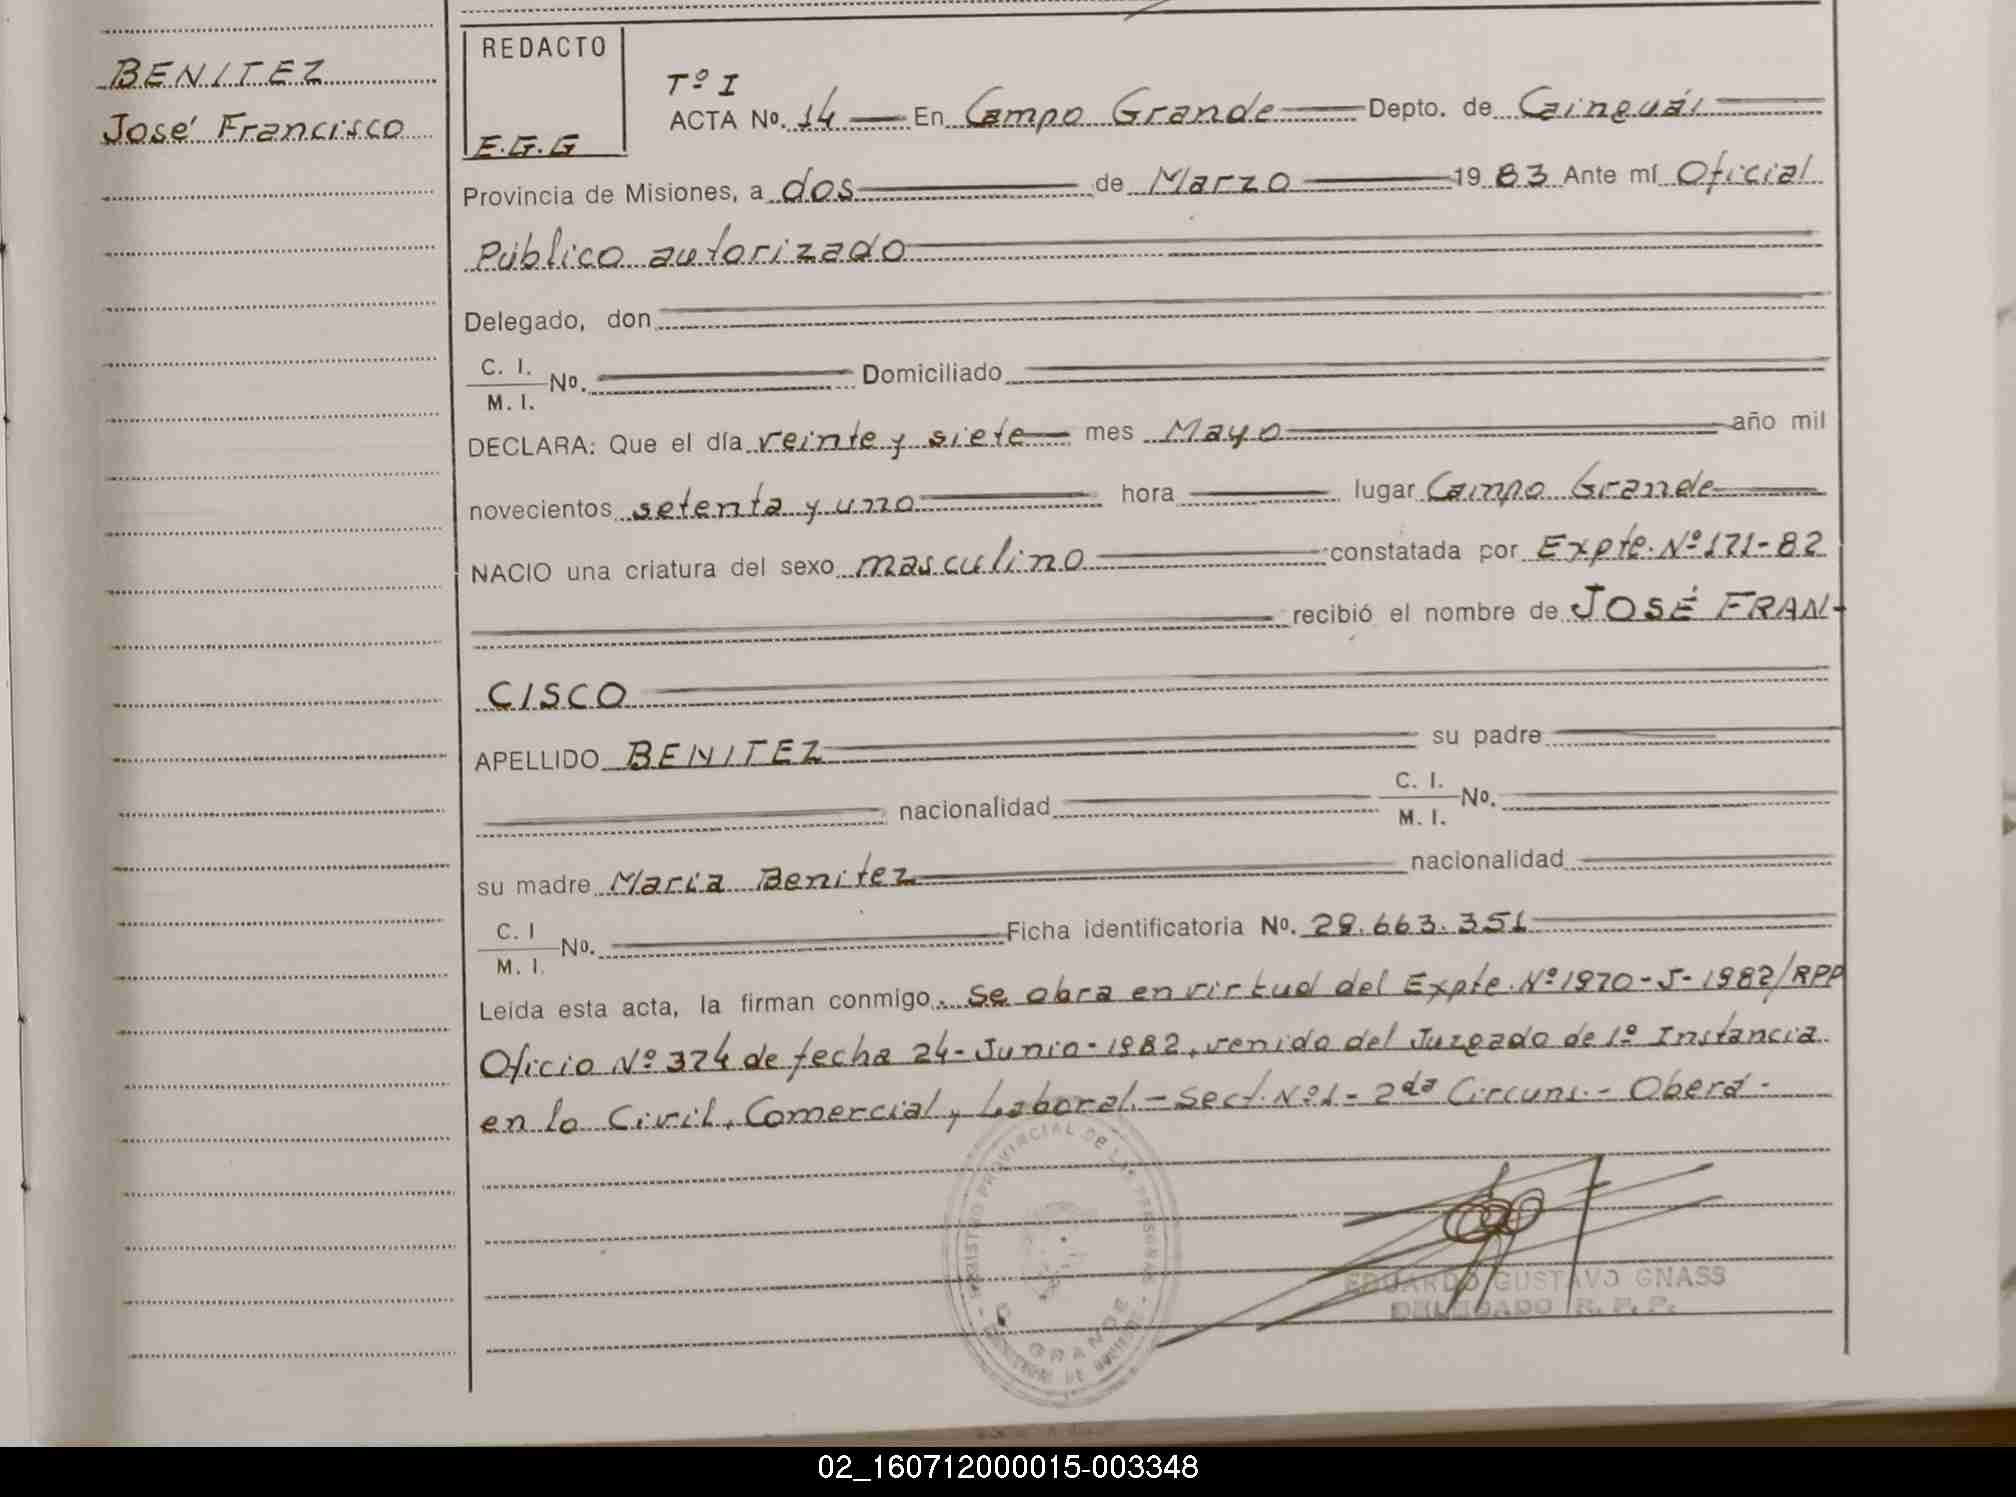 BENITEZ
José Francisco
REDACTO
E.G.G
Tº I
ACTA Nº. 14 En Campo Grande Depto. de Cainguás
Provincia de Misiones, a dos de Marzo 1983 Ante mí Oficial
Público autorizado
Delegado, don
C. I.
M. I. Nº. Domiciliado
DECLARA: Que el día veinte y siete mes Mayo año mil
novecientos setenta y uno hora lugar Campo Grande
NACIO una criatura del sexo masculino constatada por Expte. Nº 171-82
recibió el nombre de JOSÉ FRAN-
CISCO
APELLIDO BENITEZ su padre
nacionalidad C. I.
M. I. Nº.
su madre María Benitez nacionalidad
C. I
M. I. Nº. Ficha identificatoria Nº. 29.663.351
Leída esta acta, la firman conmigo. Se obra en virtud del Expte. Nº 1970-J-1982/RPP
Oficio Nº 374 de fecha 24-Junio-1982, venido del Juzgado de 1º Instancia
en lo Civil, Comercial y Laboral.- Sect. Nº 1 - 2da Circuns.- Oberá.-
REGISTRO PROVINCIAL DE LAS PERSONAS
C. GRANDE
EDUARDO GUSTAVO GNASS
DELEGADO R. P. P.
02_160712000015-003348